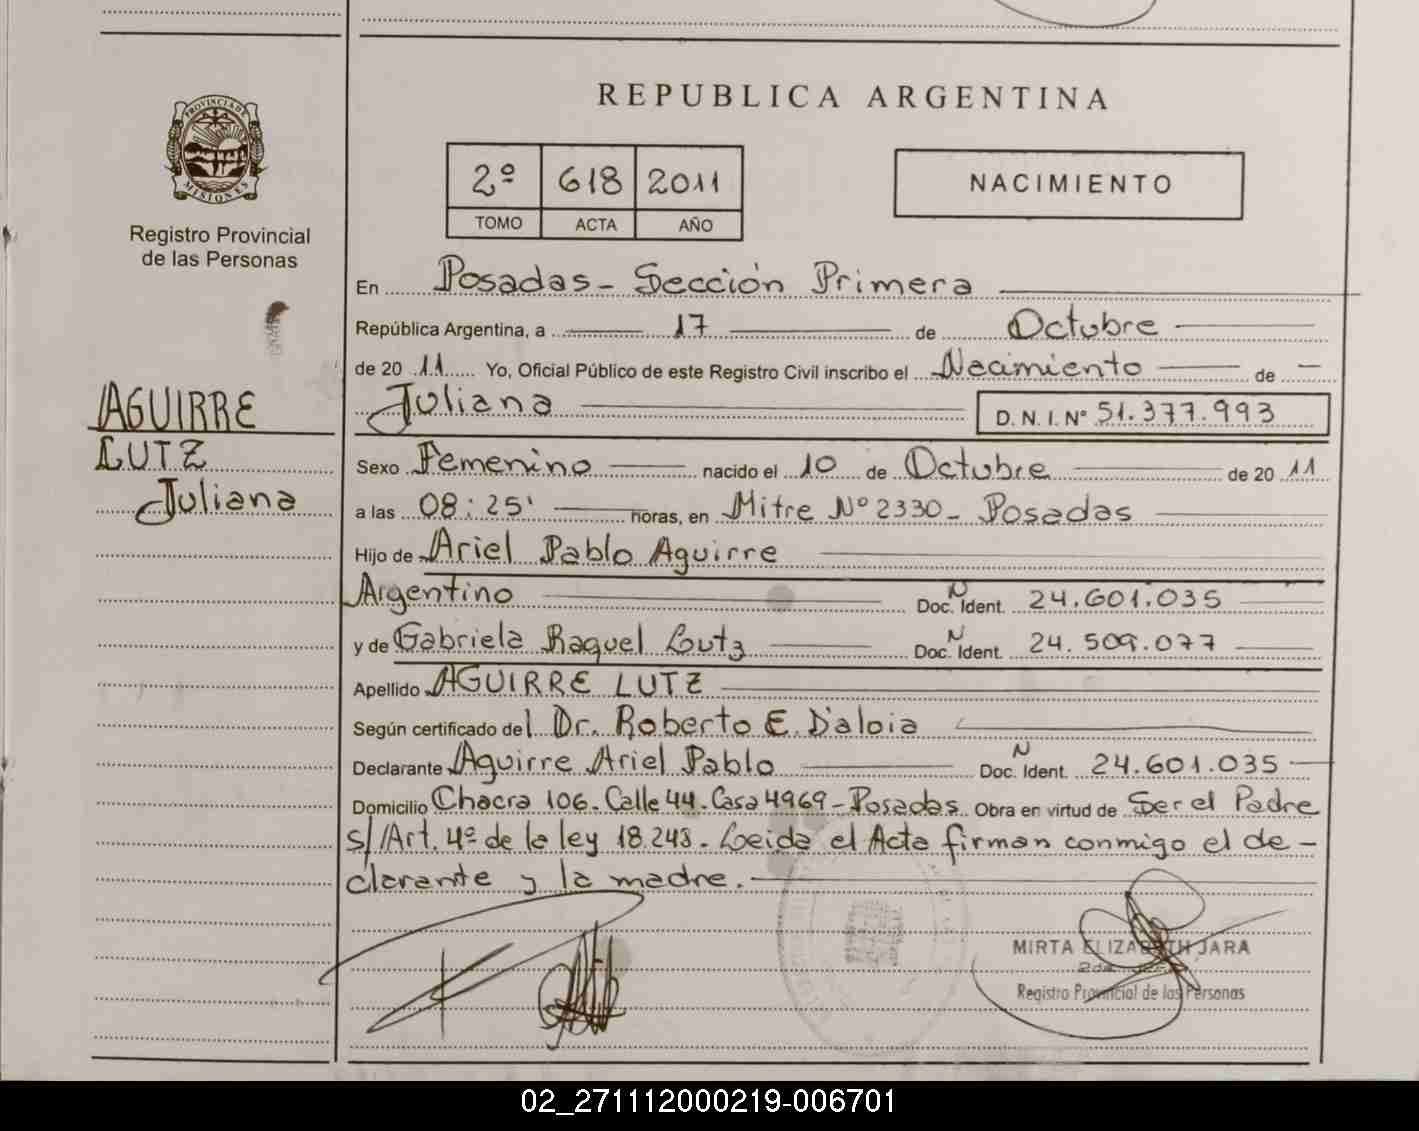 REPUBLICA ARGENTINA
PROVINCIA DE
MISIONES
Registro Provincial
de las Personas
2º 618 2011
TOMO ACTA AÑO
NACIMIENTO
En Posadas - Sección Primera
República Argentina, a 17 de Octubre
de 2011 Yo, Oficial Público de este Registro Civil inscribo el Nacimiento de -
Juliana D. N. I. Nº 51.377.993
AGUIRRE
LUTZ
Juliana
Sexo Femenino nacido el 10 de Octubre de 2011
a las 08:25' horas, en Mitre Nº 2330 - Posadas
Hijo de Ariel Pablo Aguirre
Argentino Doc. N Ident. 24.601.035
y de Gabriela Raquel Lutz Doc. N Ident. 24.509.077
Apellido AGUIRRE LUTZ
Según certificado del Dr. Roberto E. D'aloia
Declarante Aguirre Ariel Pablo Doc. N Ident. 24.601.035
Domicilio Chacra 106 - Calle 44 - Casa 4969 - Posadas Obra en virtud de Ser el Padre
s/Art. 4º de la ley 18.248. Leida el Acta firman conmigo el de-
clarante y la madre.
MIRTA ELIZABETH JARA
Registro Provincial de las Personas
02_271112000219-006701